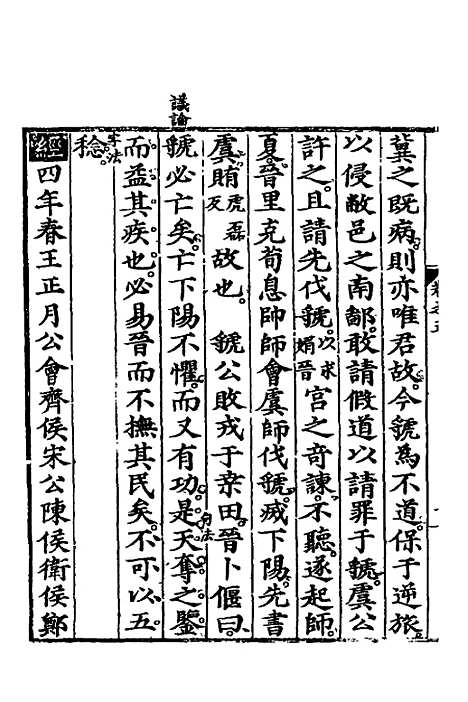 冀之既病則亦唯君故今虢為不道保于逆旅
以侵敝邑之南鄙敢請假道以請罪于虢虞公
許之且請先伐虢以求媚晉宮之奇諫不聽遂起師
夏晉里克荀息帥師會虞師伐虢滅下陽先書
虞賄故也虢公敗戎于桑田晉卜偃曰
議論
虢必亡矣亡下陽不懼而又有功是天奪之鑒
句法
而益其疾也必易晉而不撫其民矣不可以五
字法
稔
經四年春王正月公會齊侯宋公陳侯衛侯鄭